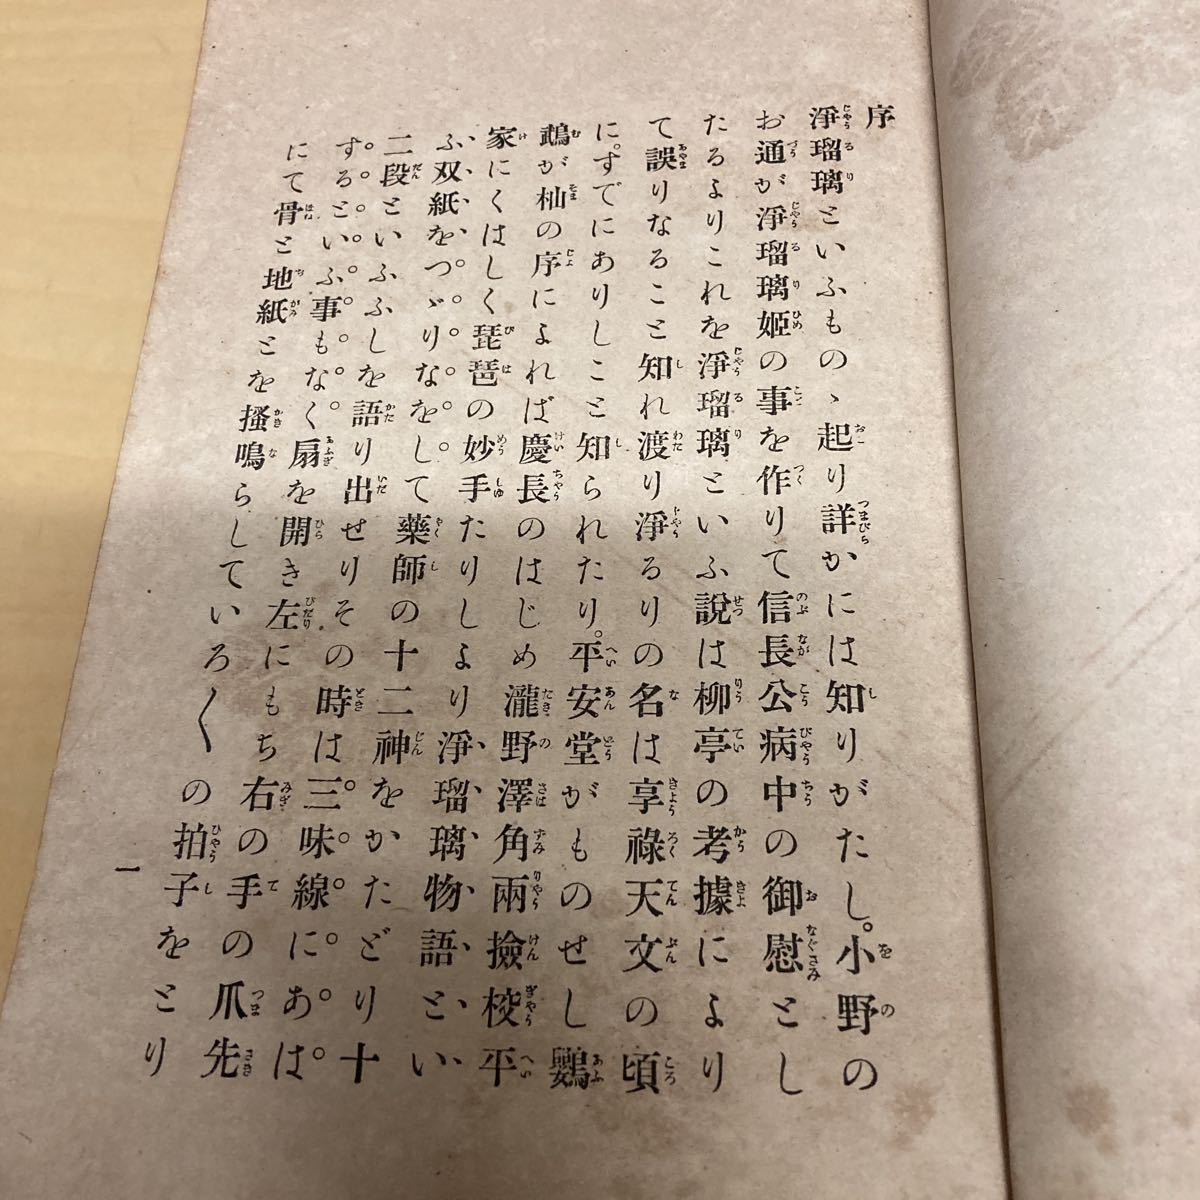 序
淨瑠璃といふものゝ起り詳かには知りがたし。小野の
お通が淨瑠璃姫の事を作りて信長公病中の御慰とし
たるよりこれを淨瑠璃といふ說は柳亭の考據により
て誤りなること知れ渡り淨るりの名は享祿天文の頃
に。すでにありしこと知られたり。平安堂がものせし鸚
鵡が杣の序によれば慶長のはじめ瀧野澤角兩撿校平
家にくはしく琵琶の妙手たりしより淨瑠璃物語とい
ふ双紙をつゞりなをして藥師の十二神をかたどり十
二段といふふしを語り出せりその時は三味線にあは
することいふ事もなく扇を開き左にもち右の手の爪先
にて骨と地紙とを搔鳴らしていろ〱の拍子をとり
一